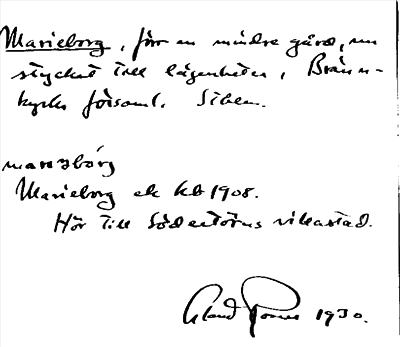 Marieborg, förr en mindre gård, nu
styckat till lägenheter, Bränn-
kyrka församl. Sthlm.
marɪjəbórj
Marieborg ek kb 1908.
Hör till Södertörns villastad.
1930.